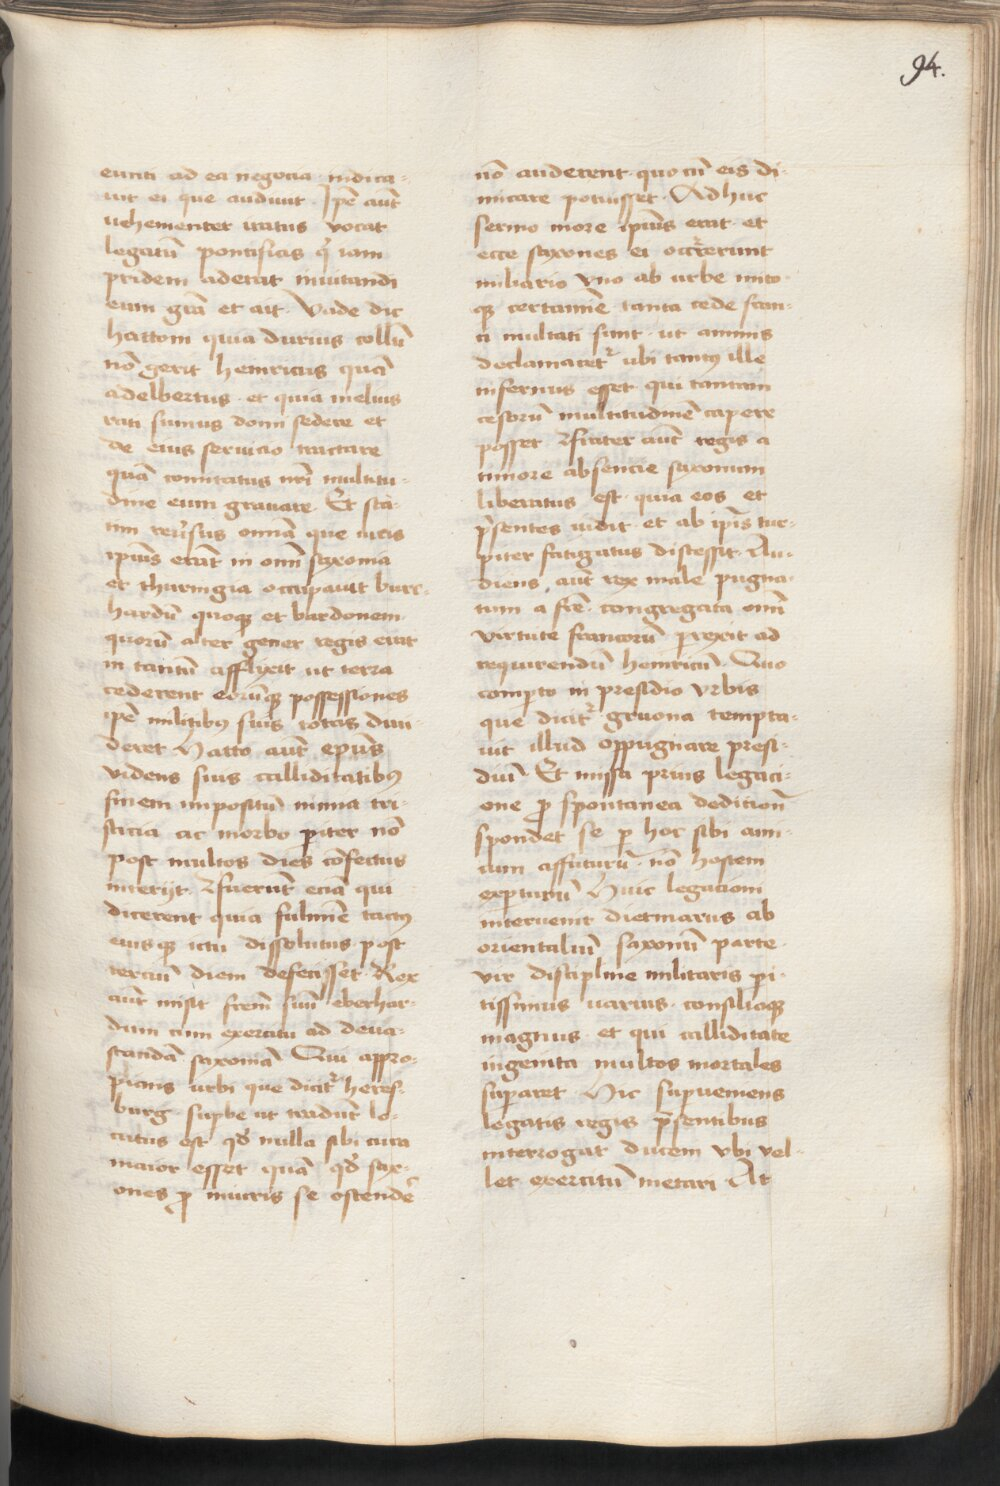 94.
eunti ad ea negocia indica-
uit ei que audiuit. Ipē aūt
uehementer iratus vocat
legatū pontificis q̄ iam
pridem aderat inuitandi
eum grā et ait. Vade dic
hattoni quia durius collū
nō gerit heinricus quā
adelbertus. et quia melius
rati sumus domi sedere et
de eius seruicio tractare
quā comitatus nrī multitu-
dine eum grauare. Et sta-
tim reuersus omīa que iuris
ipiūs erāt in omī saxonia
et thuringia occupauit burc-
hardū quoqꝫ et bardonem
quorū alter gener regis erat
in tantū afflixit ut terra
cederent eorūqꝫ possessiones
ipē militibꝰ suis totas diui-
deret Hatto aūt epūs
videns suis calliditatibꝰ
finem impositū nimia tri-
sticia ac morbo pariter nō
post multos dies cōfectus
interijt. Et fuerūt eciā qui
dicerent quia fulmīe tactꝰ
eiusqꝫ ictu dissolutus post
terciū diem defecisset. Rex
aūt misit frēm suū eberhar-
dum cum exercitu ad deua-
standā saxoniā Qui appro-
pians urbi que dicitʳ heres-
burg supbe ut tradūt lo-
cutus est qđ nulla sibi cura
maior esset quā qđ sax-
ones p muris se ostendē
nō auderent. quo cū eis di-
micare potuisset. Adhuc
sermo more ipiūs erat. et
ecce saxones ei occʳrerunt
miliario vno ab urbe inito-
qꝫ certamīe tanta cede fran-
ci multati sunt. ut a mimis
declamaretʳ ubi tantꝰ ille
infernus esset. qui tantam
cesorū multitudinē capere
posset Et frater aūt regis a
timore absencie saxonum
liberatus est. quia eos et
p̄sentes uidit. et ab ipīs tur-
piter fatigatus discessit. Au-
diens aūt rex male pugna-
tum a frē. congregata omī
virtute francorū prexit ad
requirendū heinricū. Quo
comperto in presidio vrbis
que dicitʳ gruona tempta-
uit illud oppugnare presi-
diū Et missa prius legaci-
one p spontanea dedicionē
spondet se p hoc sibi ami-
cum affuturū. nō hostem
experturū Huic legacioni
interuenit dietmarus ab
orientaliū saxonū parte.
vir discipline militaris peri-
tissimus uarius. consilioqꝫ
magnus. et qui calliditate
ingenita multos mortales
superaret. Hic superueniens
legatis regis p̄sentibus
interrogat ducem vbi vel-
let exercitū metari At